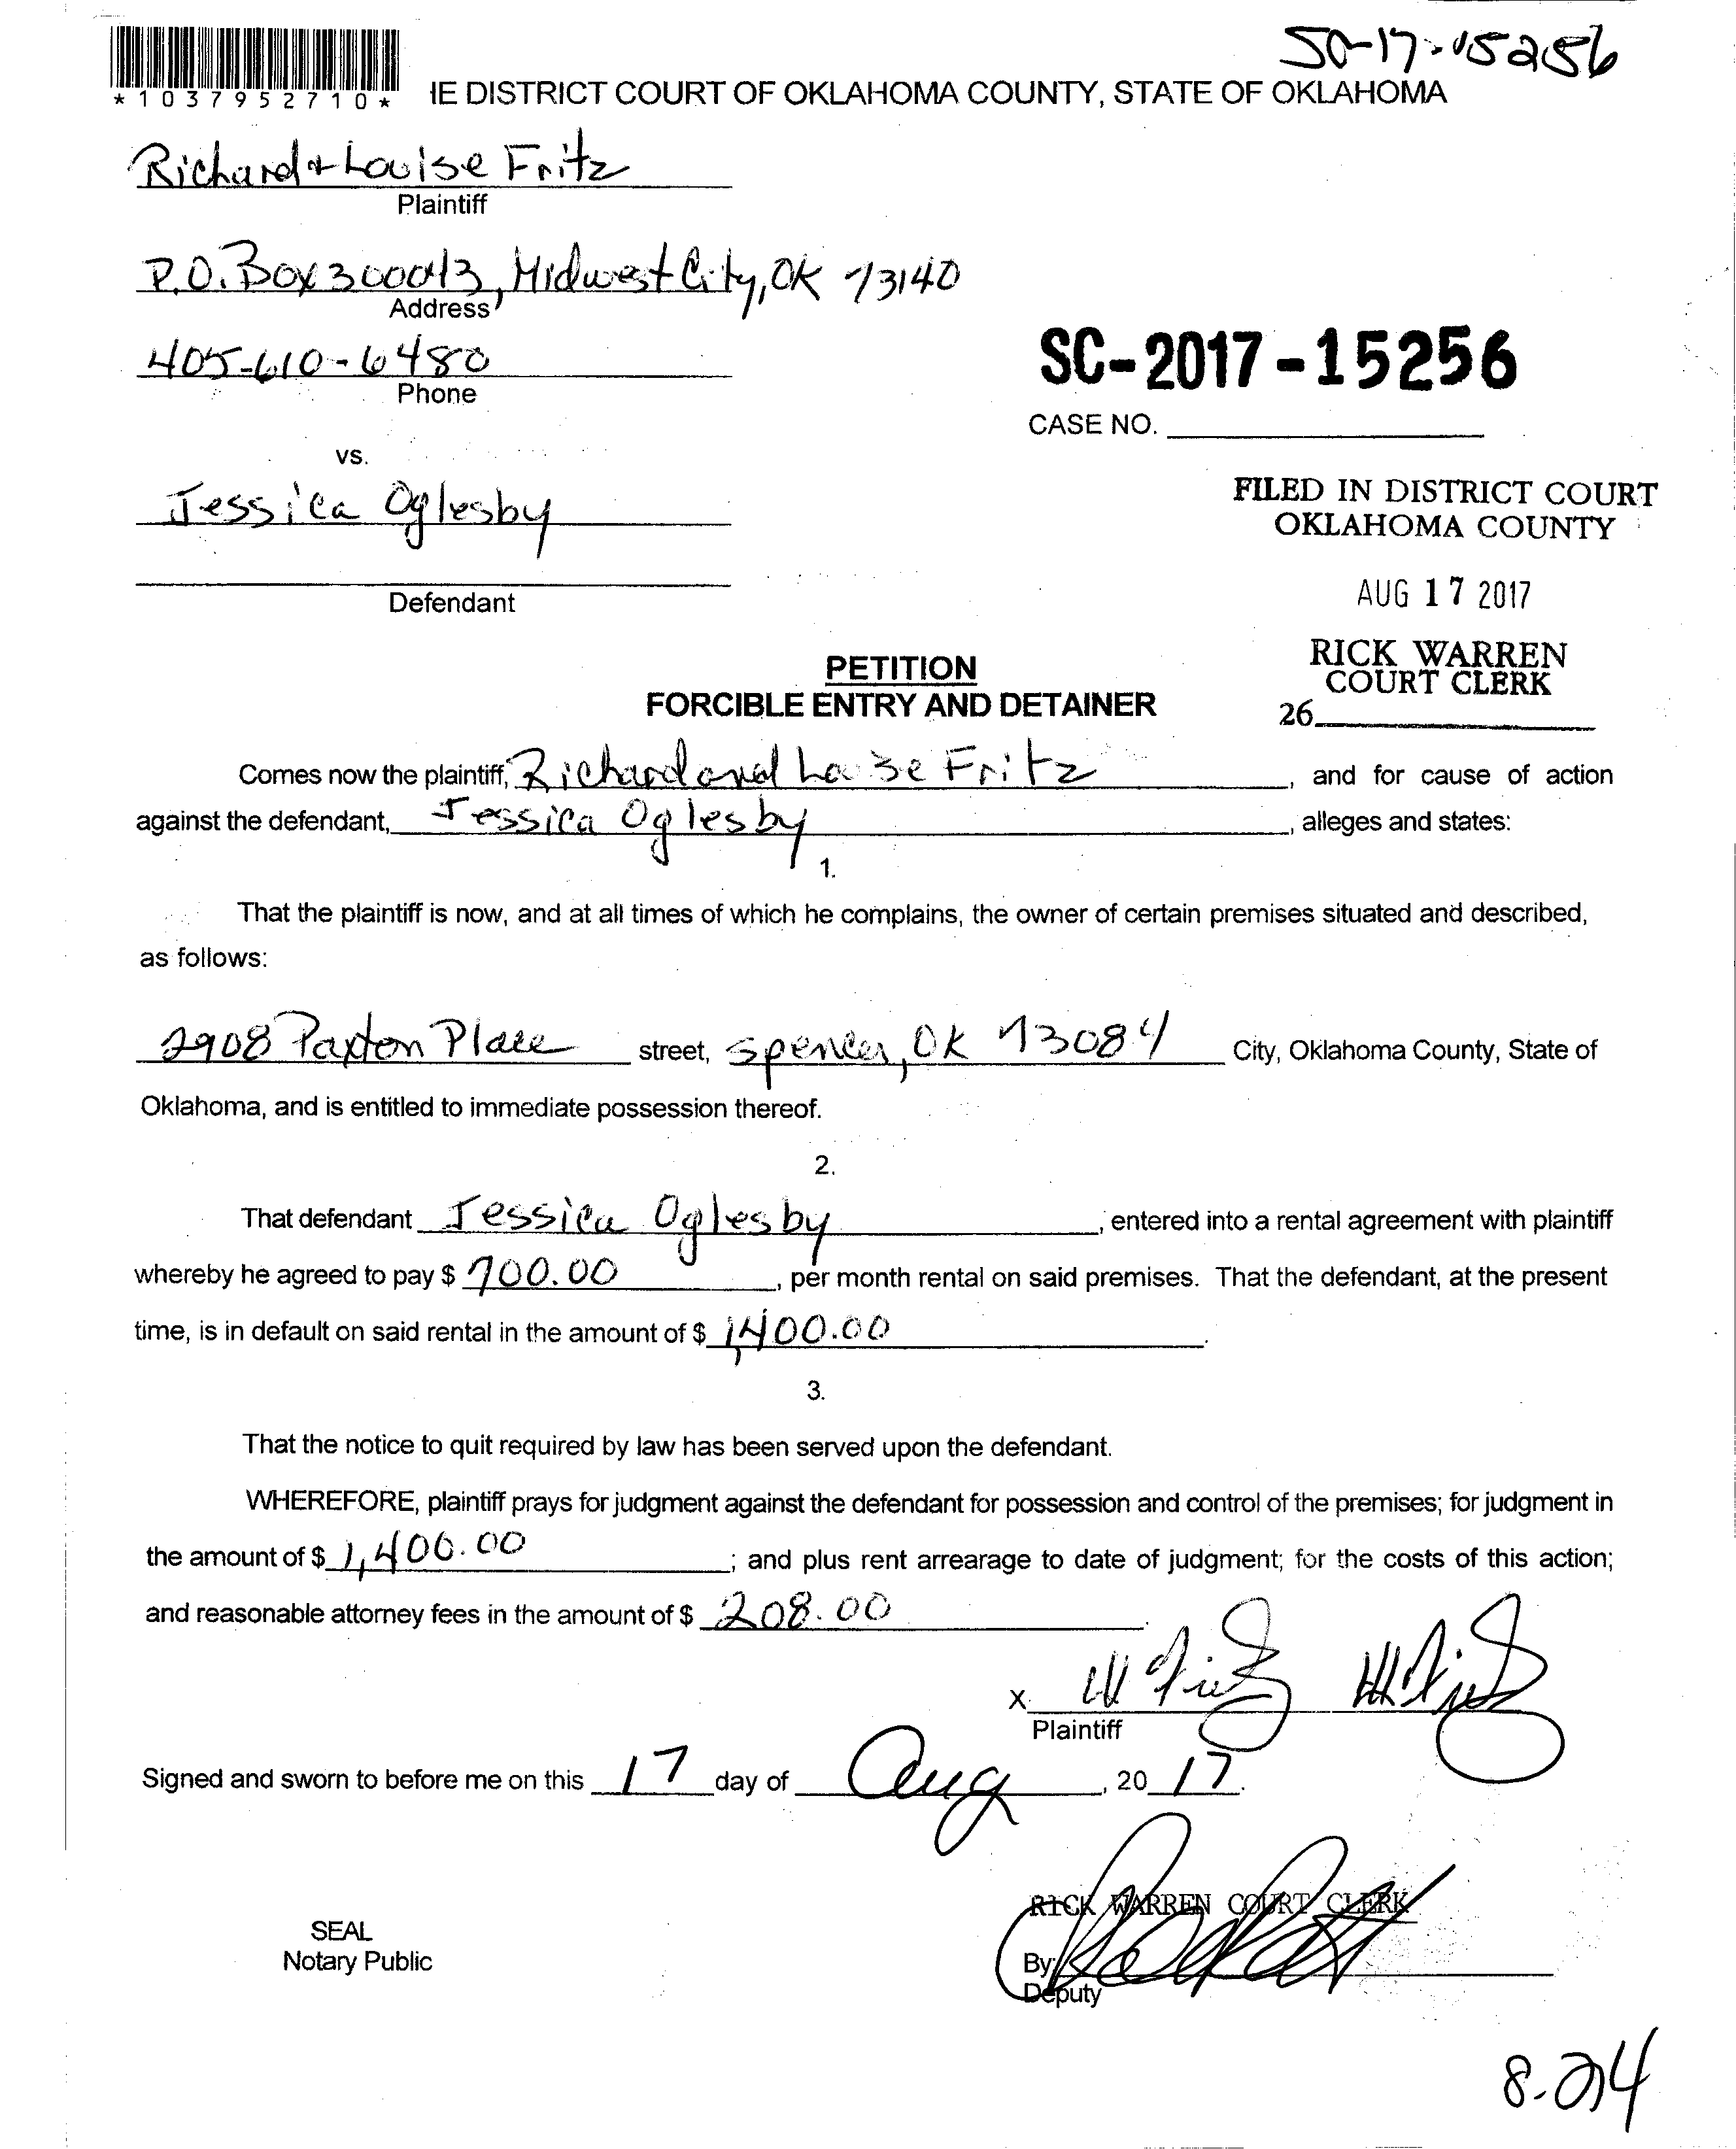 SC-17-15256
*1037952710*
IE DISTRICT COURT OF OKLAHOMA COUNTY, STATE OF OKLAHOMA
Richard + Louise Fritz
Plaintiff
P.O. Box 300013, Midwest City, OK 73140
Address
405-610-6480
Phone
SC-2017-15256
CASE NO.
vs.
Jessica Oglesby
Defendant
FILED IN DISTRICT COURT
OKLAHOMA COUNTY
AUG 17 2017
RICK WARREN
COURT CLERK
26
PETITION
FORCIBLE ENTRY AND DETAINER
Comes now the plaintiff, Richard and Louise Fritz, and for cause of action
against the defendant, Jessica Oglesby, alleges and states:
1.
That the plaintiff is now, and at all times of which he complains, the owner of certain premises situated and described,
as follows:
2908 Paxton Place street, Spencer, OK 73084 City, Oklahoma County, State of
Oklahoma, and is entitled to immediate possession thereof.
2.
That defendant Jessica Oglesby, entered into a rental agreement with plaintiff
whereby he agreed to pay $ 700.00, per month rental on said premises. That the defendant, at the present
time, is in default on said rental in the amount of $ 1,400.00.
3.
That the notice to quit required by law has been served upon the defendant.
WHEREFORE, plaintiff prays for judgment against the defendant for possession and control of the premises; for judgment in
the amount of $ 1,400.00; and plus rent arrearage to date of judgment; for the costs of this action;
and reasonable attorney fees in the amount of $ 208.00.
X
Plaintiff
Signed and sworn to before me on this 17 day of Aug, 20 17.
RICK WARREN COURT CLERK
SEAL
Notary Public
By
Deputy
8-24